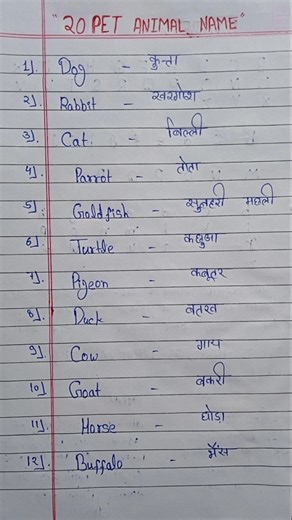 "20 PET ANIMAL NAME"
1]. Dog - कुत्ता
2]. Rabbit - खरगोश
3]. Cat - बिल्ली
4]. Parrot - तोता
5]. Goldfish - सुनहरी मछली
6]. Turtle - कछुआ
7]. Pigeon - कबूतर
8]. Duck - बतख
9]. Cow - गाय
10]. Goat - बकरी
11]. Horse - घोड़ा
12]. Buffalo - भैंस